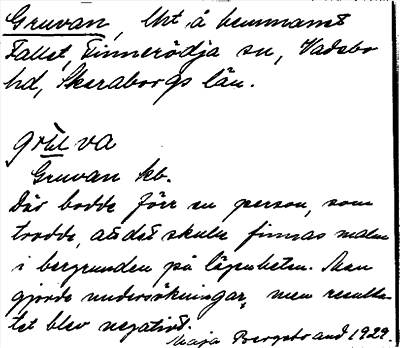 Gruvan, lht å hemmanet
Fallet, Finnerödja sn, Vadsbo
hd, Skaraborgs län.
va
Gruvan kb.
Där bodde förr en person, som
trodde, att det skulle finnas malm
i bergrunden på lägenheten. Man
gjorde undersökningar, men resulta-
tet blev negativt.
Maja Bergstrand 1929.